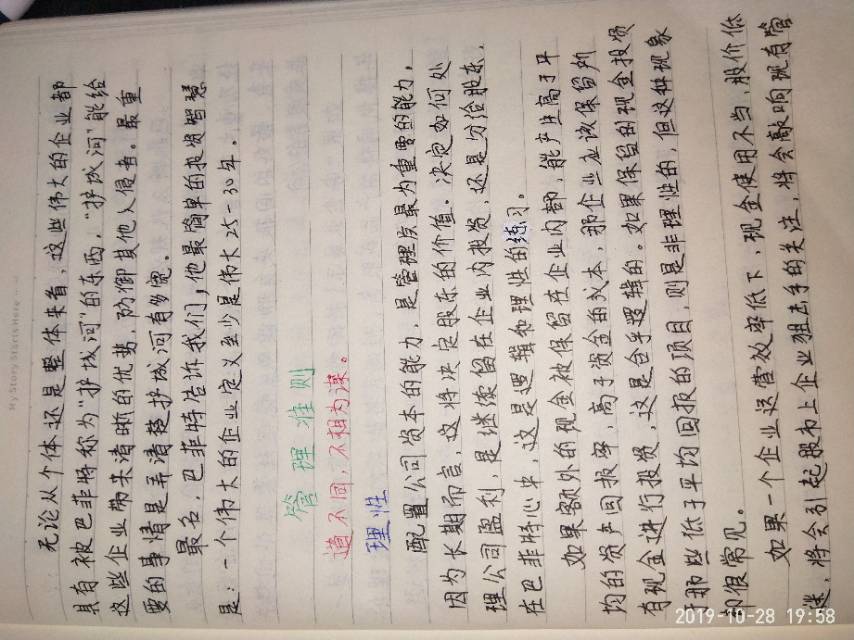 My Story Starts Here
无论从个体还是整体来看，这些伟大的企业都
具有被巴菲特称为“护城河”的东西，“护城河”能给
这些企业带来清晰的优势，防御其他入侵者。最重
要的事情是弄清楚护城河有多宽。
最名，巴菲特告诉我们，他最简单的投资智慧
是：一个伟大的企业定义至少是伟大25-30年。
管理准则
道不同，不相为谋。
理性
配置公司资本的能力，是管理层最为重要的能力，
因为长期而言，这将决定股东的价值。决定如何处
理公司盈利，是继续留在企业内投资，还是分给股东，
在巴菲特心中，这是逻辑和理性的练习。
如果额外的现金被保留在企业内部，能产生高于平
均的资产回报率，高于资金的成本，那企业应该保留所
有现金进行投资，这是合乎逻辑的。如果保留的现金投资
于那些低于平均回报的项目，则是非理性的，但这种现象
却很常见。
如果一个企业运营效率低下，现金使用不当，股价低
迷，将会引起股市上企业狙击手的关注，将会敲响现有管
2019-10-28 19:58